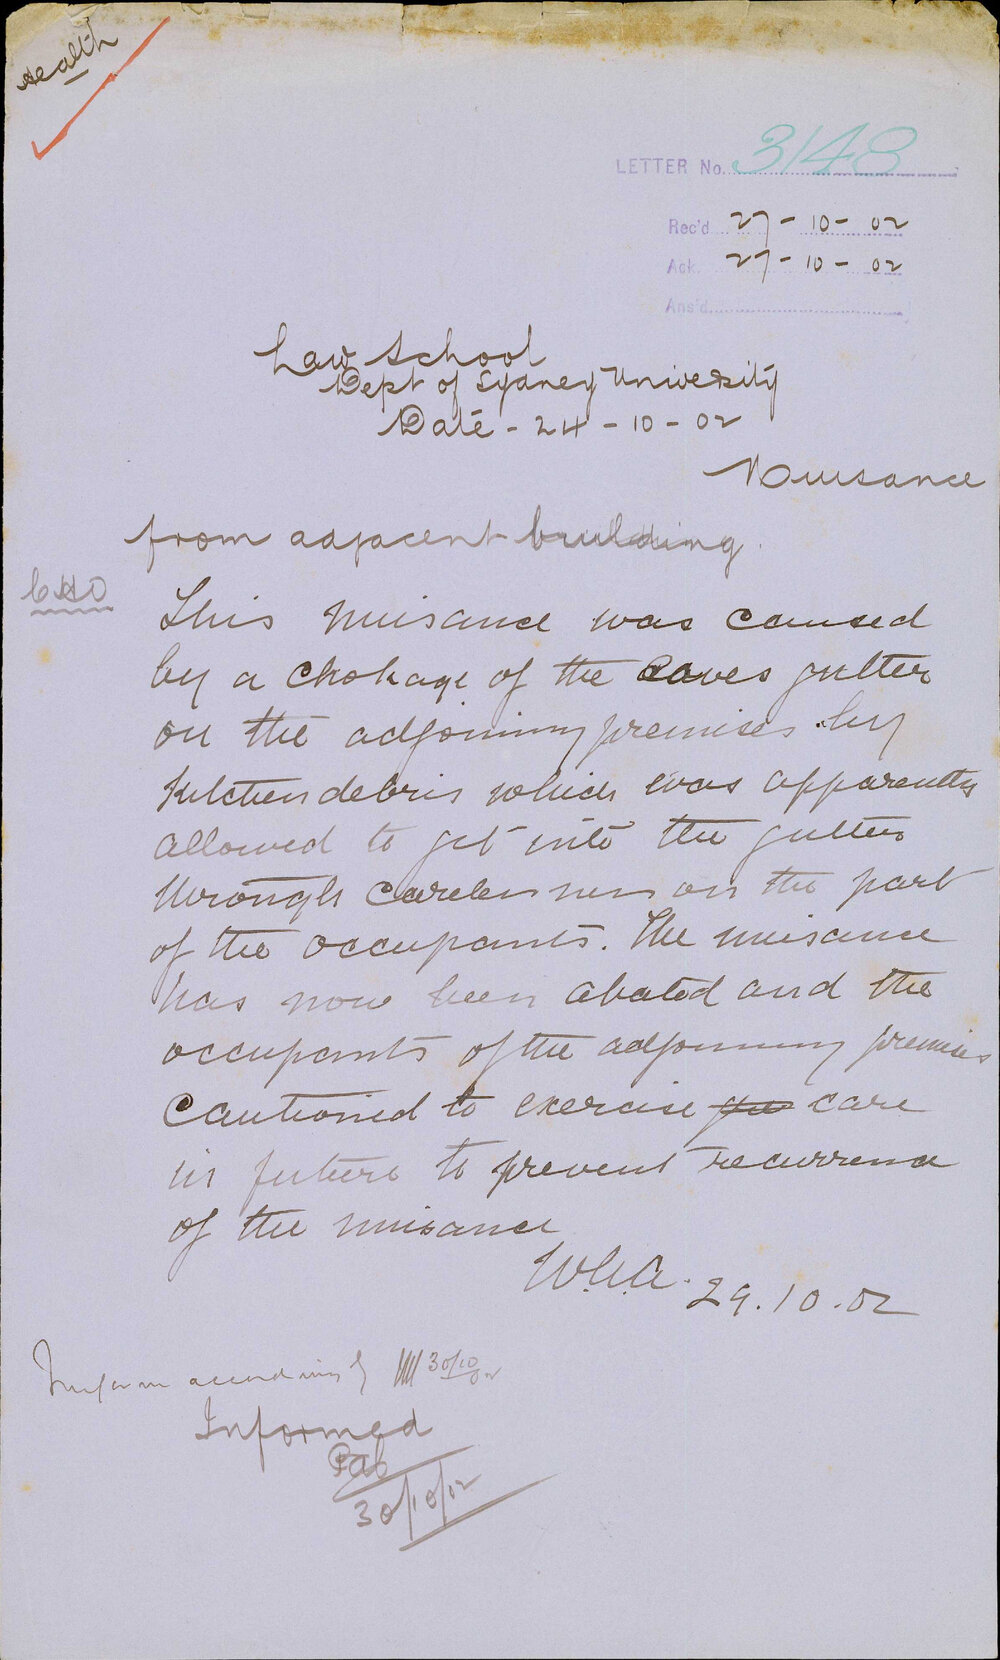 Health
LETTER No. 3148
Rec'd 27-10-02
Ack. 27-10-02
Ans'd
Law School
Dept of Sydney University
Date - 24-10-02
Nuisance
from adjacent building.
CHO
This nuisance was caused
by a chokage of the eaves gutter
on the adjoining premises by
Kitchen debris which was apparently
allowed to get into the gutter
through carelessness on the part
of the occupants. The nuisance
has now been abated and the
occupants of the adjoining premises
cautioned to exercise care
in future to prevent recurrence
of the nuisance
29.10.02
Inform accordingly 30/10/02
Informed
30/10/02